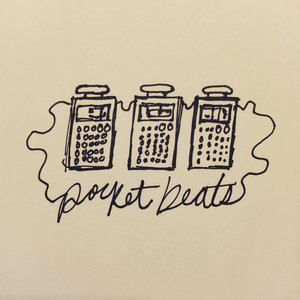 pocket beats